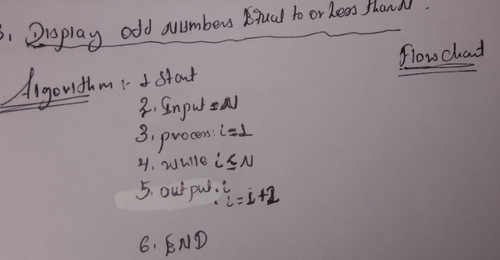 3. Display odd numbers Equal to or Less than N.
Flowchart
Algorithm :- 1 Start
2. Input = N
3. process: i=1
4. while i ≤ N
5. output. i
i = i+2
6. END